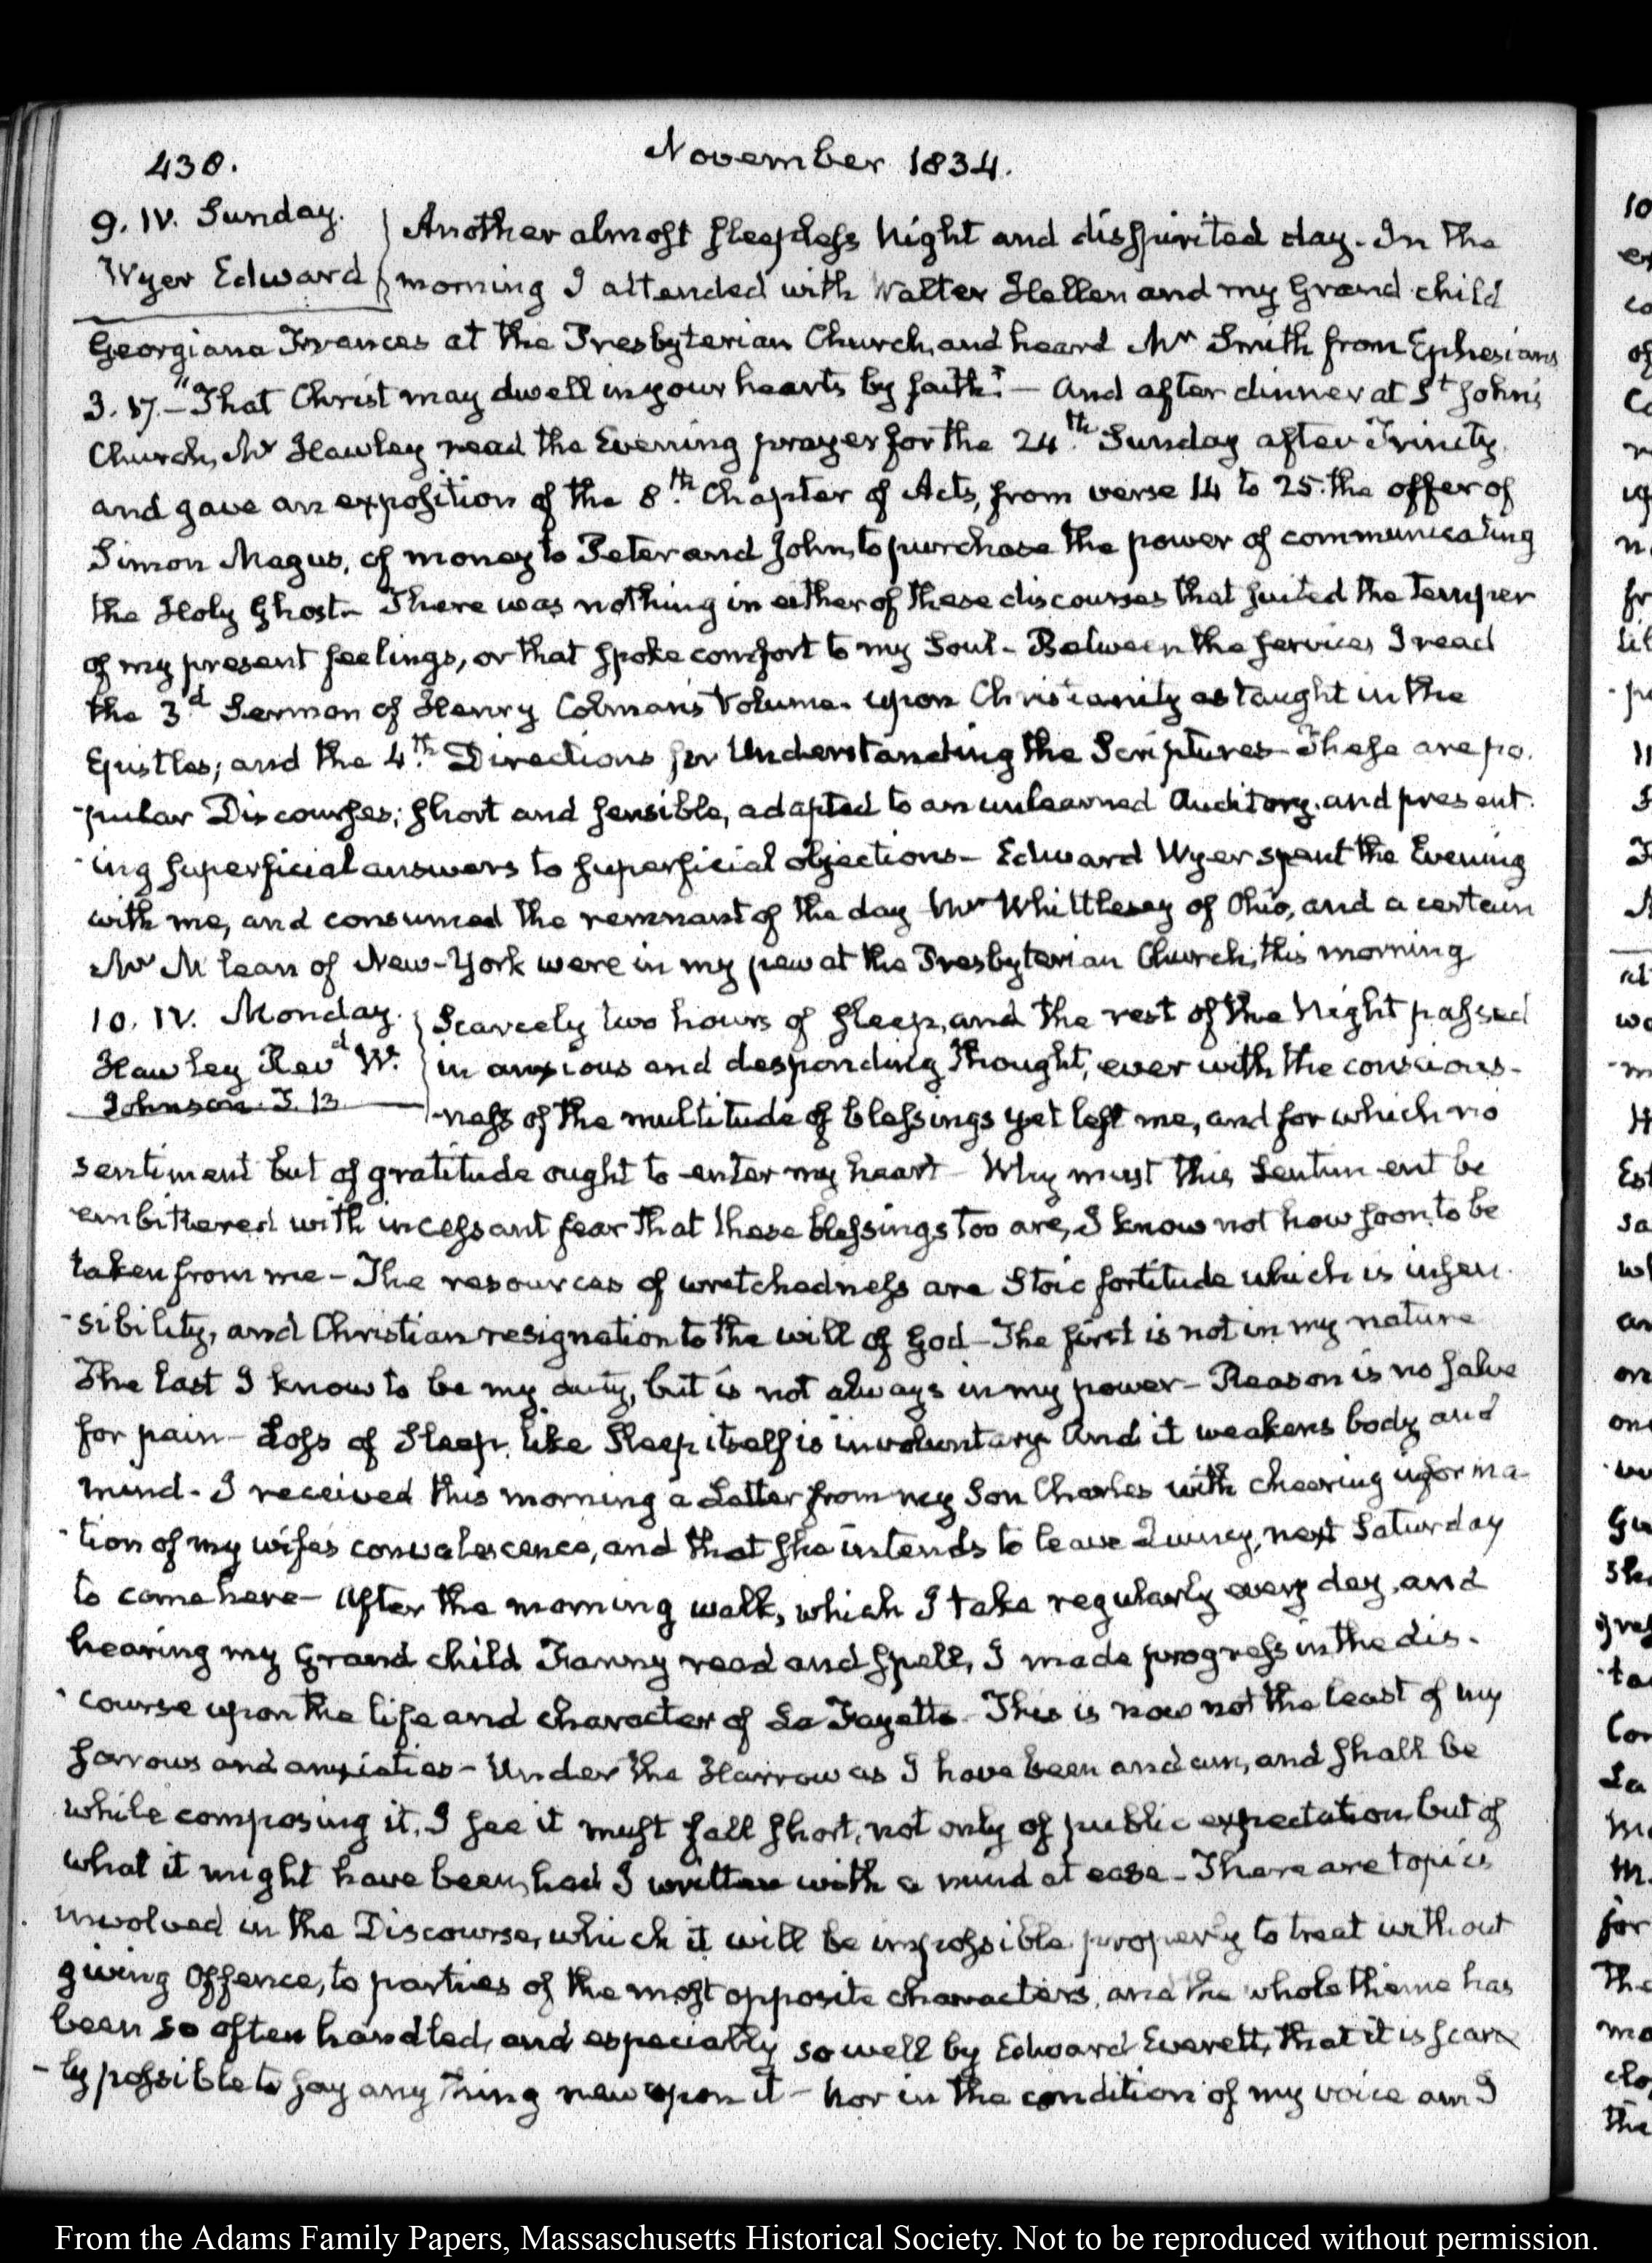 430.
November 1834.
9. IV. Sunday.
Wyer Edward
Another almost sleepless Night and dispirited day. In the
morning I attended with Walter Hellen and my Grand child
Georgiana Frances at the Presbyterian Church, and heard Mr Smith from Ephesians
3. 17.— "That Christ may dwell in your hearts by faith."— And after dinner at St John's
Church, Mr Hawley read the Evening prayer for the 24th Sunday after Trinity,
and gave an exposition of the 8th Chapter of Acts, from verse 14 to 25. the offer of
Simon Magus, of money to Peter and John, to purchase the power of communicating
the Holy Ghost— There was nothing in either of these discourses that suited the temper
of my present feelings, or that spoke comfort to my Soul— Between the services I read
the 3d Sermon of Henry Colman's Volume. upon Christianity as taught in the
Epistles; and the 4th Directions for Understanding the Scriptures— These are po-
-pular Discourses; short and sensible, adapted to an unlearned Auditory. and present-
-ing superficial answers to superficial objections— Edward Wyer spent the Evening
with me, and consumed the remnant of the day Mr Whittlesey of Ohio, and a certain
Mr Mlean of New-York were in my pew at the Presbyterian Church, this morning
10. IV. Monday.
Hawley Revd W.
Johnson.
Scarcely two hours of sleep, and the rest of the Night passed
in anxious and desponding thought, ever with the conscious-
-ness of the multitude of blessings yet left me, and for which no
sentiment but of gratitude ought to enter my heart— Why must this Sentiment be
embittered with incessant fear that these blessings too are, I know not how soon, to be
taken from me— The resources of wretchedness are Stoic fortitude which is insen-
-sibility, and Christian resignation to the will of God— The first is not in my nature
The last I know to be my duty, but is not always in my power— Reason is no salve
for pain— Loss of Sleep, like Sleep itself is involuntary And it weakens body and
mind— I received this morning a Letter from my Son Charles with cheering informa-
-tion of my wife's convalescence, and that she intends to leave Quincy, next Saturday
to come here— After the morning walk, which I take regularly every day, and
hearing my Grand child Fanny read and spell, I made progress in the dis-
-course upon the life and character of La Fayette— This is now not the least of my
sorrows and anxieties— Under the Harrow as I have been and am, and shall be
while composing it, I see it must fall short, not only of public expectation but of
what it might have been, had I written with a mind at ease— There are topics
involved in the Discourse, which it will be impossible properly to treat without
giving Offence, to parties of the most opposite characters, and the whole theme has
been so often handled, and especially so well by Edward Everett, that it is scarce
-ly possible to say any thing new upon it— Nor in the condition of my voice am I
From the Adams Family Papers, Massachusetts Historical Society. Not to be reproduced without permission.